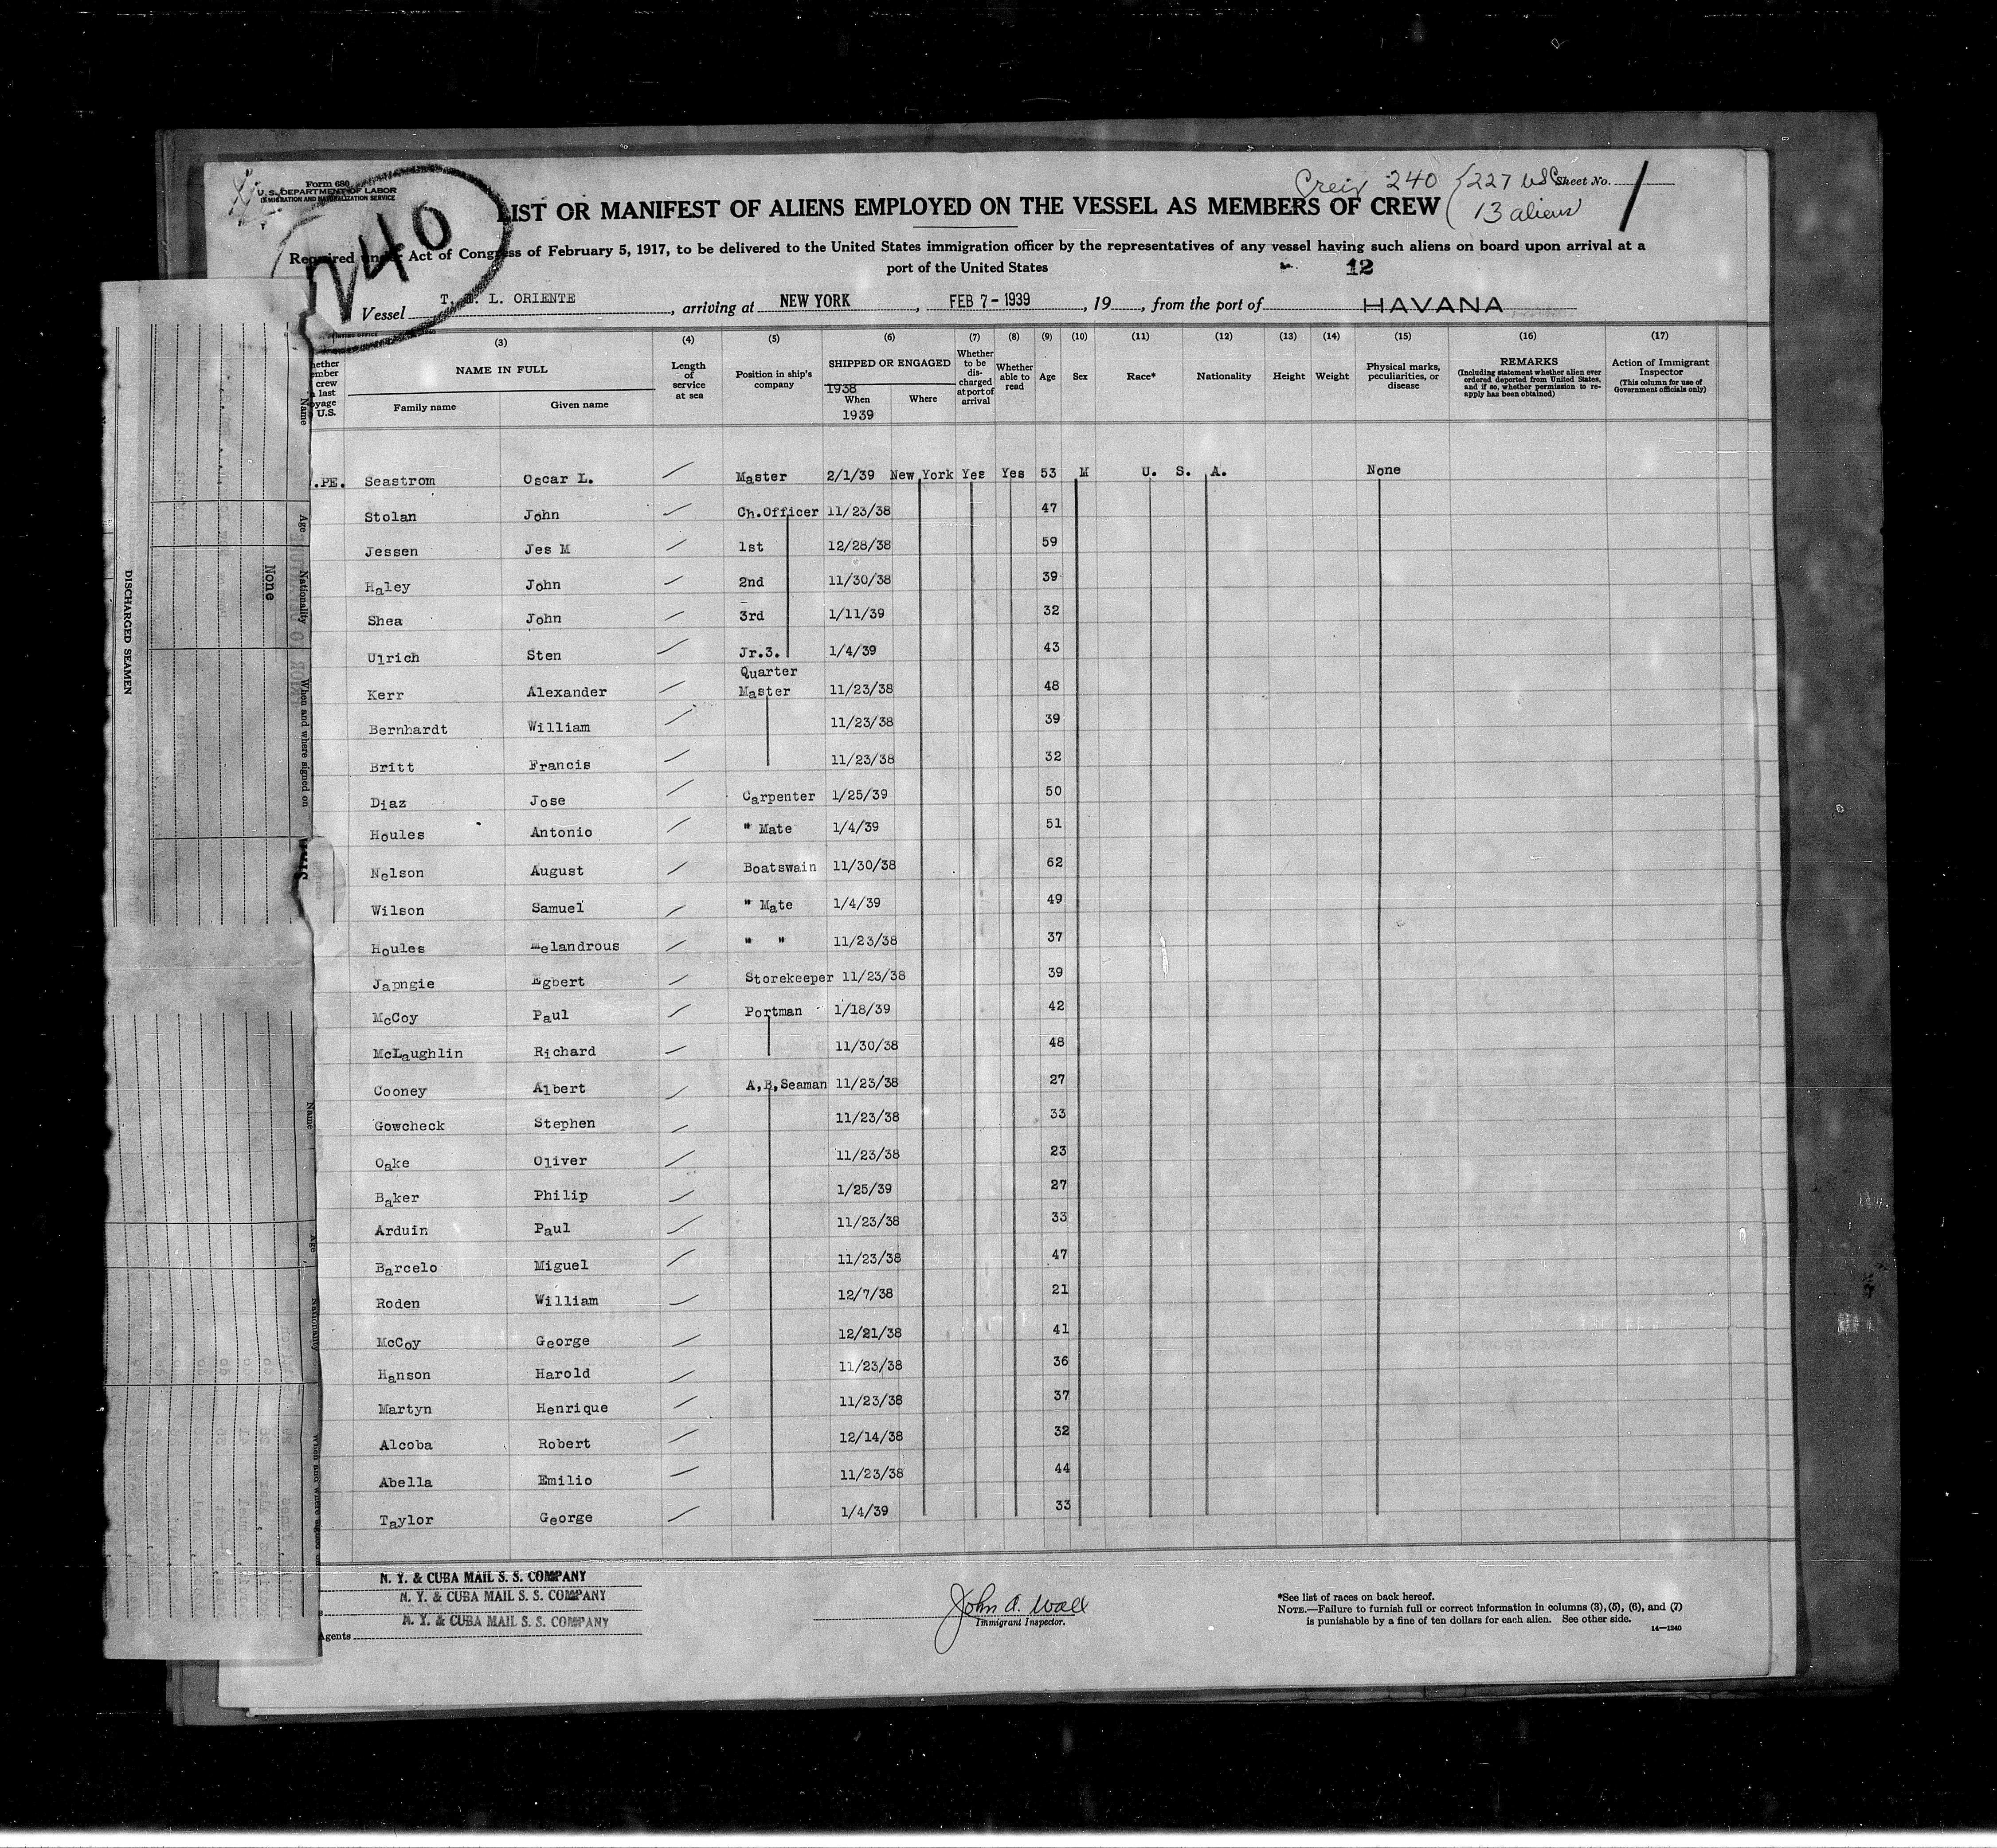 Form 680
U. S. DEPARTMENT OF LABOR
IMMIGRATION AND NATURALIZATION SERVICE
240
Crew 240 {227 USC
13 aliens
Sheet No. 1
LIST OR MANIFEST OF ALIENS EMPLOYED ON THE VESSEL AS MEMBERS OF CREW
Required under Act of Congress of February 5, 1917, to be delivered to the United States immigration officer by the representatives of any vessel having such aliens on board upon arrival at a
port of the United States
12
Vessel T. E. L. ORIENTE, arriving at NEW YORK, FEB 7 - 1939, 19, from the port of HAVANA
(3) (4) (5) (6) (7) (8) (9) (10) (11) (12) (13) (14) (15) (16) (17)
NAME IN FULL
Family name Given name
Length of service at sea
Position in ship's company
SHIPPED OR ENGAGED
1938
When
1939
Where
Whether to be discharged at port of arrival
Whether able to read
Age
Sex
Race*
Nationality
Height
Weight
Physical marks, peculiarities, or disease
REMARKS
(Including statement whether alien ever ordered deported from United States, and if so, whether permission to reapply has been obtained)
Action of Immigrant Inspector
(This column for use of Government officials only)
.PE. Seastrom Oscar L. Master 2/1/39 New York Yes Yes 53 M U. S. A. None
Stolan John Ch.Officer 11/23/38 47
Jessen Jes M 1st 12/28/38 59
Haley John 2nd 11/30/38 39
Shea John 3rd 1/11/39 32
Ulrich Sten Jr.3. 1/4/39 43
Quarter
Kerr Alexander Master 11/23/38 48
Bernhardt William 11/23/38 39
Britt Francis 11/23/38 32
Diaz Jose Carpenter 1/25/39 50
Houles Antonio " Mate 1/4/39 51
Nelson August Boatswain 11/30/38 62
Wilson Samuel " Mate 1/4/39 49
Houles Melandrous " " 11/23/38 37
Japngie Egbert Storekeeper 11/23/38 39
McCoy Paul Portman 1/18/39 42
McLaughlin Richard 11/30/38 48
Cooney Albert A,B,Seaman 11/23/38 27
Gowcheck Stephen 11/23/38 33
Oake Oliver 11/23/38 23
Baker Philip 1/25/39 27
Arduin Paul 11/23/38 33
Barcelo Miguel 11/23/38 47
Roden William 12/7/38 21
McCoy George 12/21/38 41
Hanson Harold 11/23/38 36
Martyn Henrique 11/23/38 37
Alcoba Robert 12/14/38 32
Abella Emilio 11/23/38 44
Taylor George 1/4/39 33
N. Y. & CUBA MAIL S. S. COMPANY
N. Y. & CUBA MAIL S. S. COMPANY
N. Y. & CUBA MAIL S. S. COMPANY
Agents
John A. Wall
Immigrant Inspector.
*See list of races on back hereof.
NOTE.—Failure to furnish full or correct information in columns (3), (5), (6), and (7)
is punishable by a fine of ten dollars for each alien. See other side.
14—1240
DISCHARGED SEAMEN
Name
Age
Nationality
When and where signed on
None
Name
Age
Nationality